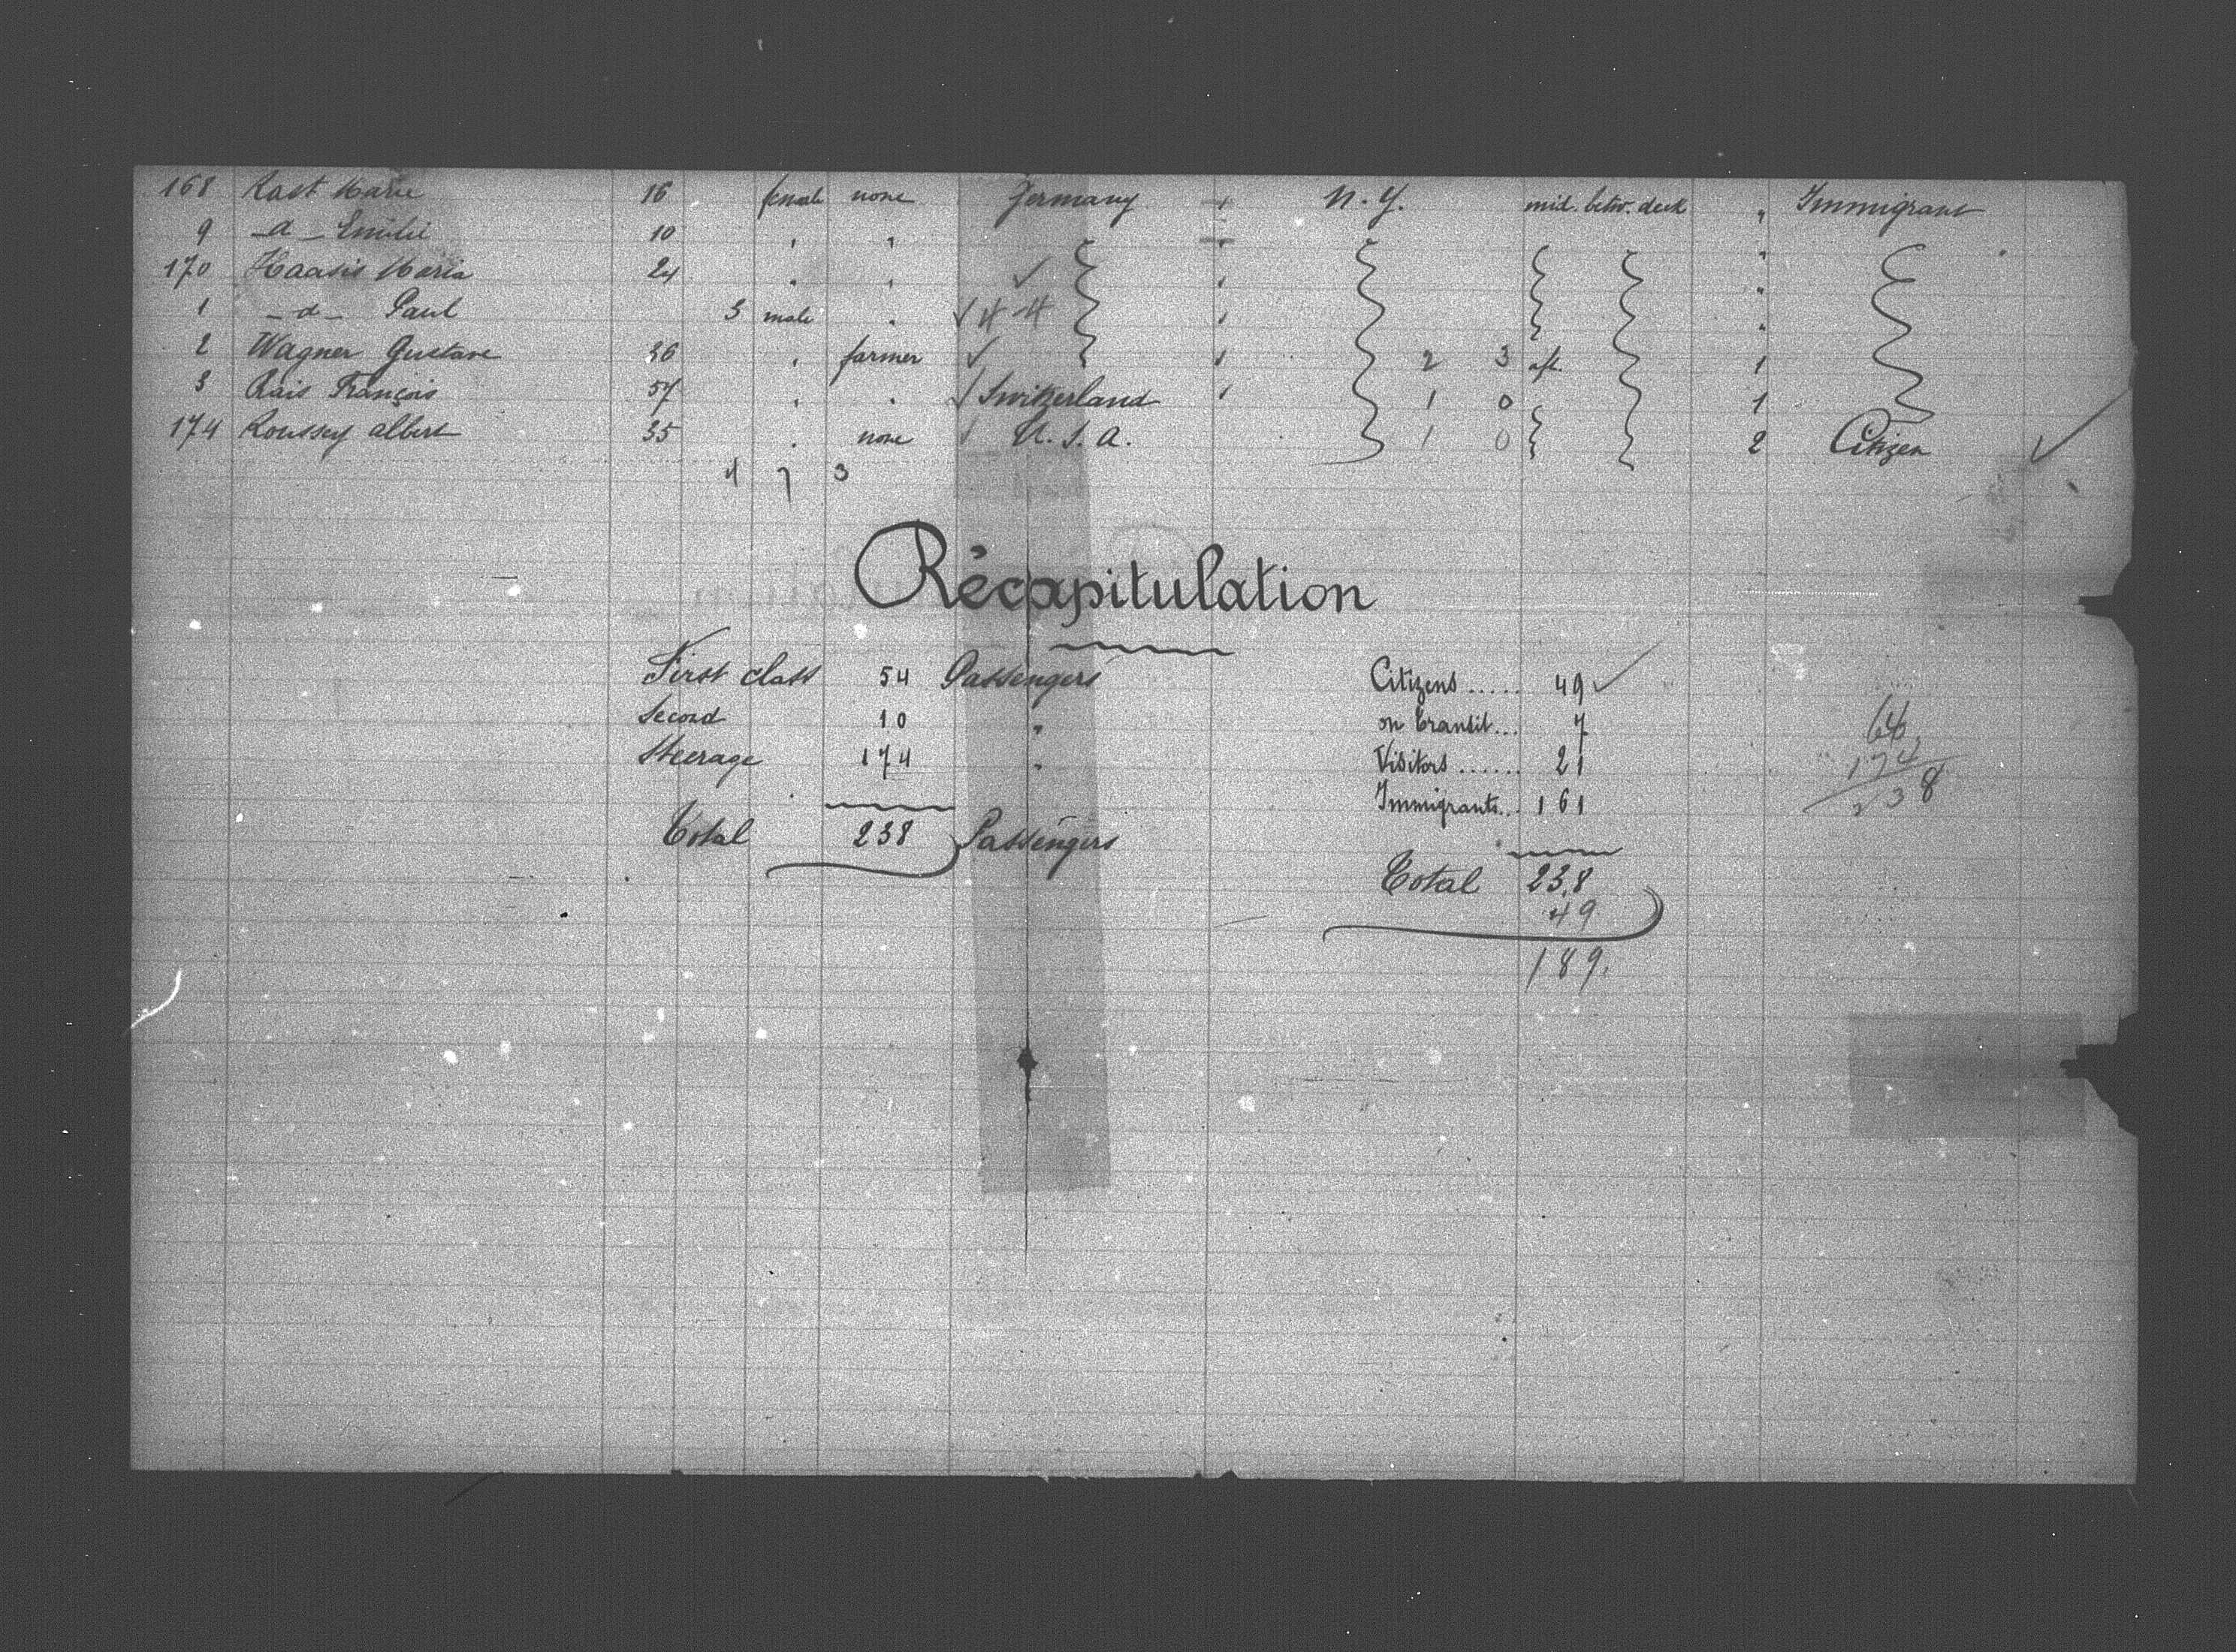 168 Rast Marie 16 female none Germany N. Y. mid. betw. deck " Immigrant
9 -d- Emilie 10 " " " "
170 Haasis Maria 24 " " " "
1 -d- Paul 3 male " 4 4 " "
2 Wagner Gustave 36 " farmer " 2 3 aft. 1
3 Rais François 57 " " Switzerland " 1 0 1
174 Roussey Albert 35 " none U. S. A. 1 0 2 Citizen
4 7 3
Récapitulation
First class 54 Passengers
Second 10 "
Steerage 174 "
Total 238 Passengers
Citizens ..... 49
on transit... 7
Visitors ...... 21
Immigrants... 161
Total 238
49
189.
64
174
238